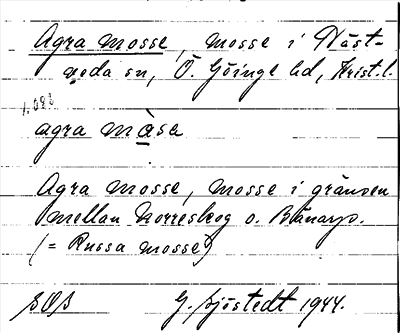 Agra mosse, mosse i Näst-
veda sn, Ö. Göinge hd, Krist. l.
agra màsa
Agra mosse, mosse i gränsen
mellan Norreskog o. Brånarp.
(= Russa mosse)
G. Sjöstedt 1944.